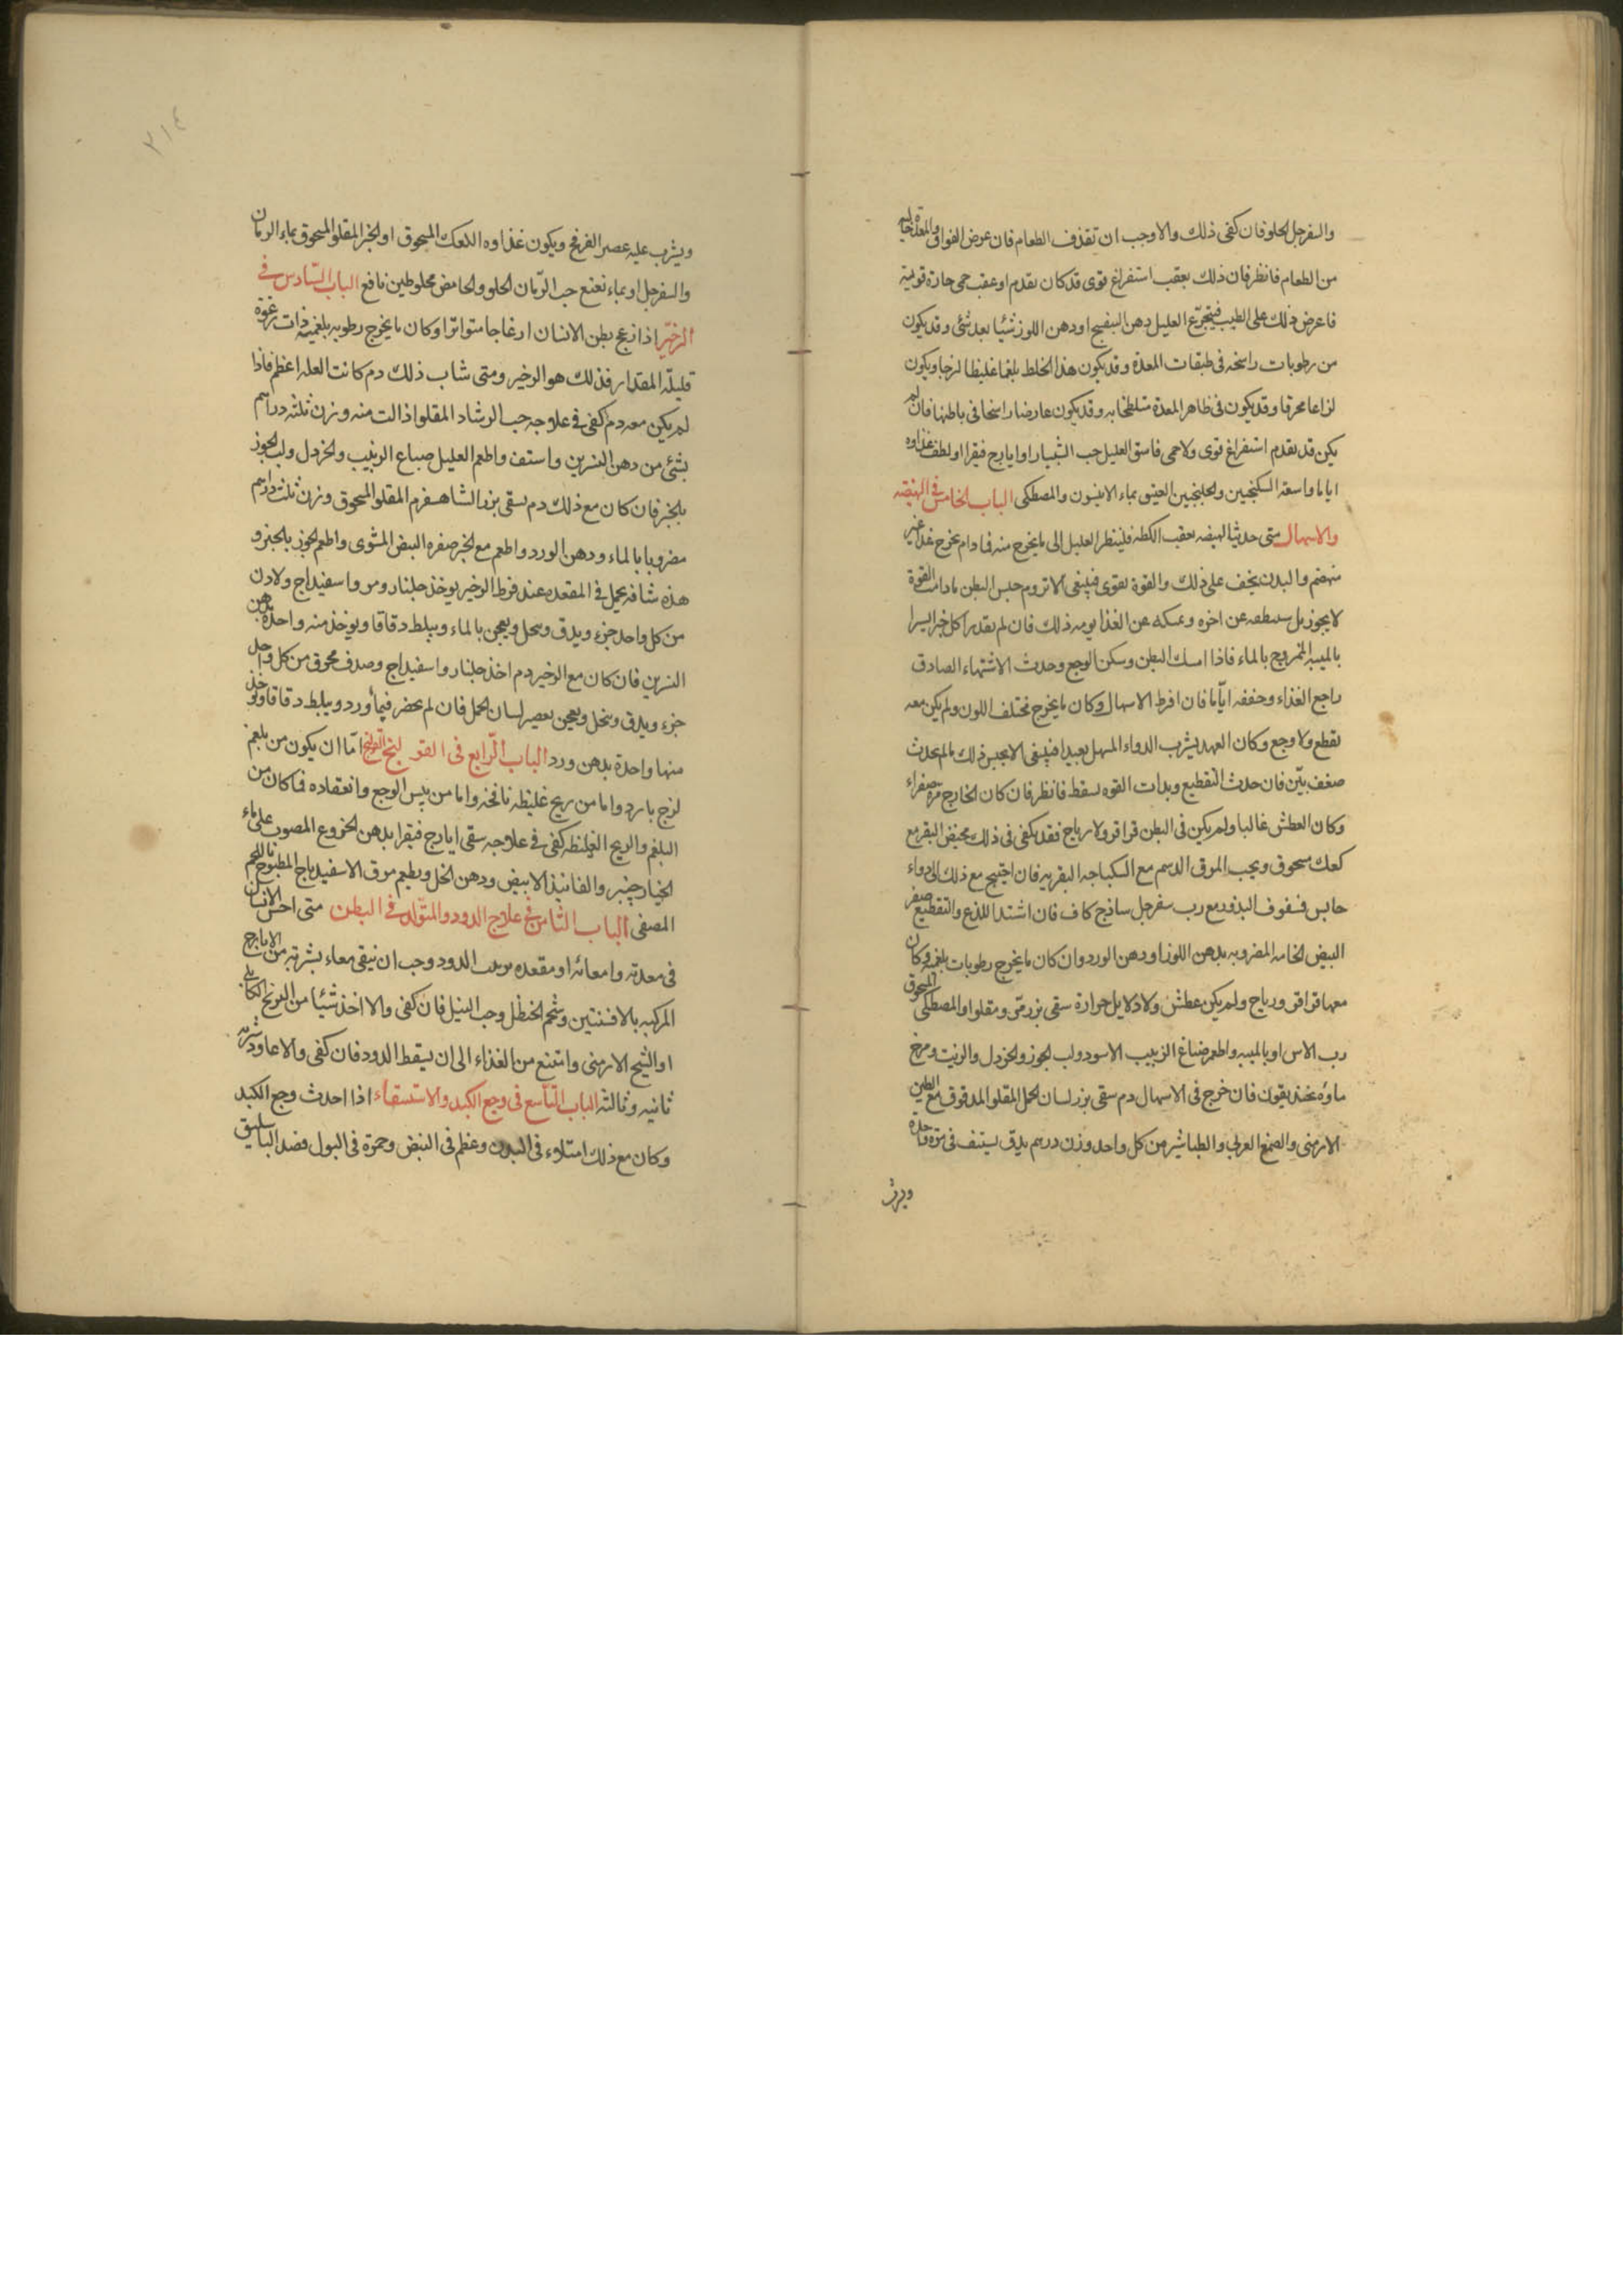 والسفرجل الحلو فان كفى ذلك والا وجب ان تقذف الطعام فان عرض الفواق والمعدة خاليه
من الطعام فانظر فان ذلك بعقب استفراغ قوى قد كان تقدم او عقب حمى حارة قويه
فاعرض ذلك على الطبيب فيتجرّع العليل دهن البنفسج او دهن اللوز شيئا بعد شئ وقد يكون
من رطوبات راسخه فى طبقات المعدة وقد يكون هذا الخلط بلغما غليظا لزجا ويكون
لزاعا محرقا وقد يكون فى ظاهر المعدة متلطخا به وقد يكون عارضا راسخا فى باطنها فان لم
يكن قد تقدم استفراغ قوى ولا حمى فاسق العليل حب الشبيار او ايارج فيقرا ولطف غذاوه
اياما واسقه السكنجبين والجلنجبين العتيق بماء الانيسون والمصطكى الباب الخامس فى الهيضه
والاسهال متى حدث الهيضه بعقب الكظه فلينظر العليل الى ما يخرج منه فما دام يخرج غذا غير
منهضم والبدن يخف على ذلك والقوة تقوى فينبغى الا تروم حبس البطن ما دامت القوة
لا يجوز بل عن اخره ويمسكه عن الغذا يومه ذلك فان لم يقدر اكل خبزا يسيرا
بالميبه الممزوج بالماء فاذا امسك البطن وسكن الوجع وحدث الاشتهاء الصادق
راجع الغذاء وخففه ايّاما فان افرط الاسهال وكان ما يخرج مختلف اللون ولم يكن معه
تقطع ولا وجع وكان العهد بشرب الدواء المسهل بعيدا فينبغى الا يحبس ذلك ما لم يحدث
ضعف بيّن فان حدث التقطيع وبدات القوه تسقط فانظر فان كان الخارج مرّه صفراء
وكان العطش غالبا ولم يكن فى البطن قراقر ولا رياح فقد يكفى فى ذلك مخيض البقر مع
كعك مسحوق ويجب المرق الدسم مع السكباجه البقريه فان احتيج مع ذلك الى دواء
حابس فسفوف البذور مع رب سفرجل ساذج كاف فان اشتد اللذع والتقطيع صفر
البيض الخامه المضروبه بدهن اللوز او دهن الورد وان كان ما يخرج رطوبات بلغميه وكان
معها قراقر ورياح ولم يكن عطش ولا دلايل حرارة سقى بزر مرّ ومقلوا والمصطكى المسحوق
رب الاس او بالميبه واطعم صباغ الزبيب الاسود ولب الجوز والخردل والزيت ومزج
ماؤه بخنديقون فان خرج فى الاسهال دم سقى بزر لسان الحمل المقلو المدقوق مع الطين
الارمنى والصمغ العربى والطباشير من كل واحد وزن درهم يدق يستف فى مرة واحدة
ويشرب
٢١٤
ويشرب عليه عصير الفرفخ ويكون غذاوه الكعك المسحوق او الخبز المقلو المسحوق بماء الرمان
والسفرجل او بماء نعنع حب الرّمان الحلو والحامض مخلوطين نافع الباب السّادس فى
الزخيّر اذا ازعج بطن الانسان ارغاجا متواترا وكان ما يخرج رطوبه بلغميه ذات رغوة
قليلّه المقدار فذلك هو الزخير ومتى شاب ذلك دم كانت العله اعظم فاذا
لم يكن معه دم كفى فى علاجه حب الرشاد المقلو اذا لت منه وزن ثلثه دراهم
بشئ من دهن النسرين واستف واطعم العليل صباغ الزبيب والخردل ولب الجوز
بالخبز فان كان مع ذلك دم يسقى بزر الشاهسفرم المقلو المسحوق وزن ثلث دراهم
مضروبا بالماء ودهن الورد واطعم مع الخبز صفره البيض المشوى واطعم الجوز بالخبز و
هذه شافه يحمل فى المقعده عند فرط الزخير يوخذ جلنار ومر واسفيداج ولادن
من كل واحد جزء ويدق وينخل ويعجن بالماء ويبلط دقاقا ويوخذ منه واحدة بدهن
النسرين فان كان مع الزخير دم اخذ جلنار واسفيداج وصدف محرق من كل واحد
جزء ويدق وينخل ويعجن بعصير لسان الحمل فان لم يحضر فبمأورد ويبلط دقاقا ويوخذ
منها واحدة بدهن ورد الباب الرّابع فى القولنج القولنج امّا ان يكون من بلغم
لزج بارد واما من ريح غليظه نافخه واما من يبس الوجع وانعقاده فما كان من
البلغم والريح الغليظه كفى فى علاجه سقى ايارج فيقرا بدهن الخروع المصوب على ماء
الخيار چنبر والفانيذ الابيض ودهن الخل ويطعم مرق الاسفيدباج المطبوخ باللحم
المصفى الباب الثامن فى علاج الدود والمتوّلد فى البطن متى احسّ الانسان
فى معدته وامعائه او مقعده بدبيب الدود وجب ان ينقى معاء بشربة من الايارج
المركبه بالافسنتين وشحم الحنظل وحب النيل فان كفى والا اخذ شيئا من البرنج الكابلى
او الشيح الارمنى وامتنع من الغذاء الى ان يسقط الدود فان كفى والا عاود شربه
ثانيه وثالثه الباب التاّسع فى وجع الكبد والاستسقاء اذا احدث وجع الكبد
وكان مع ذلك امتلاء فى البدن وعظم فى النبض وحمرة فى البول فصد الباسليق